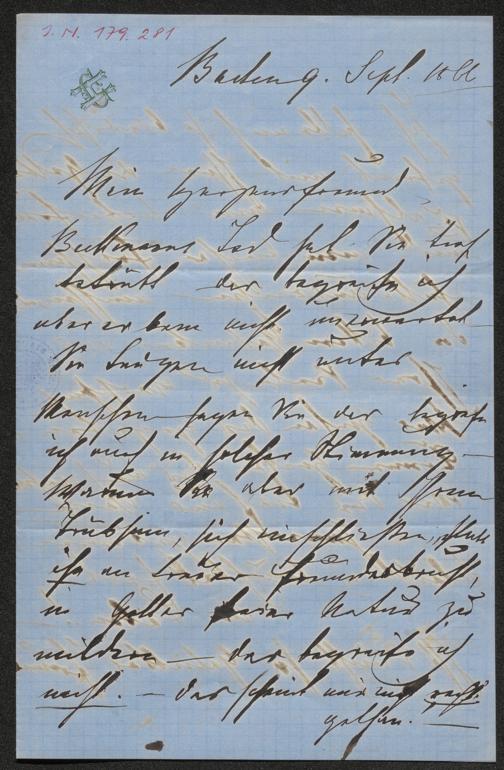 J. N. 179.281
Baden 9. Sept. 1866
Mein Herzensfreund
Tod hat Sie tief
betrübt das begreife ich
aber er kam nicht unerwartet
Sie taugen nicht unter
Menschen sagen Sie das begreife
ich auch in solcher Stimmung –
warum Sie aber mit Ihrem
Trübsinn, sich einschließen, statt
ihn an treuer Freundesbrust,
in Gottes freier Natur zu
mildern – das begreife ich
nicht. – das scheint mir nicht recht
gethan. –